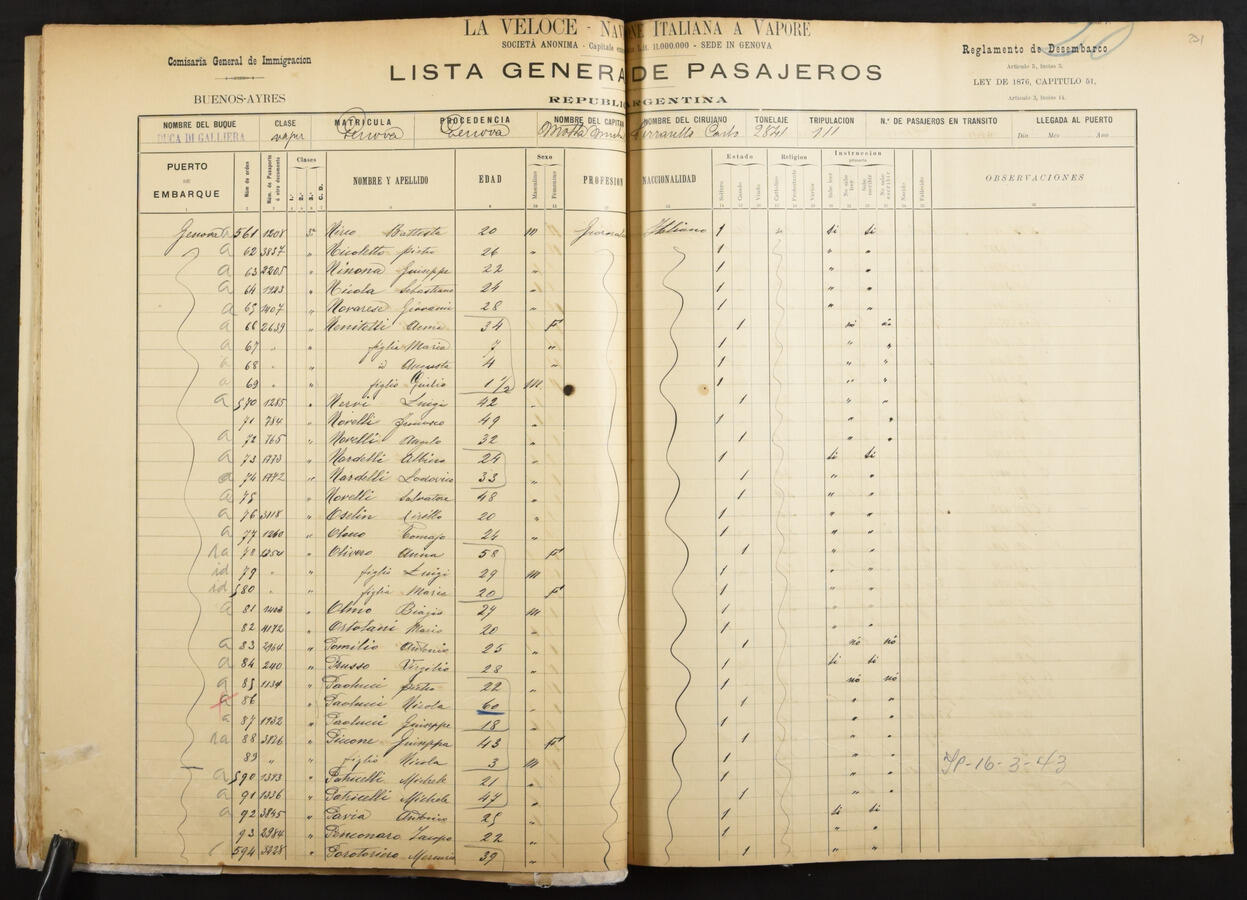 LA VELOCE - NA NE ITALIANA A VAPORE
SOCIETÀ ANONIMA - Capitale 11.000.000 - SEDE IN GENOVA
Comisaría General de Immigracion
BUENOS-AYRES
LISTA GENERA DE PASAJEROS
REPUBLIC ARGENTINA
Reglamento de Desembarco
Articulo 5, Inciso 3.
LEY DE 1876, CAPITULO 51,
Articulo 3, Inciso 14.
231
NOMBRE DEL BUQUE CLASE MATRICULA PROCEDENCIA NOMBRE DEL CAPITAN NOMBRE DEL CIRUJANO TONELAJE TRIPULACION N.º DE PASAJEROS EN TRANSITO LLEGADA AL PUERTO
DUCA DI GALLIERA vapor Genova Genova Carlo 2841 111 Dia Mes Ano
PUERTO DE EMBARQUE Núm. de orden Núm. de Pasaporte ó otro documento Clases 1.ª 2.ª 3.ª C. D. NOMBRE Y APELLIDO EDAD Sexo Masculino Femenino PROFESION NACCIONALIDAD Estado Soltero Casado Viudo Religion Catolico Protestante Varios Instruccion primaria Sabe leer No sabe leer Sabe escribir No sabe escribir Nacido Fallecido OBSERVACIONES
Genova a 561 1208 3ª Battista 20 m Italiano 1 si si
a 62 3837 " Nicoletto Pietro 26 " 1 " "
a 63 2205 " Ninona Guiseppe 22 " 1 " "
a 64 1923 " Nicola Sebastiano 24 " 1 " "
a 65 1407 " Novarese Giovanni 28 " 1 " "
a 66 2639 " Anna 34 F 1
a 67 " " figlia Maria 7 " 1 " "
68 " " id Augusta 4 " 1 " "
a 69 " " figlio Giulio 1 1/2 m 1 " "
a 570 1285 " Nervi Luigi 42 " 1 " "
71 784 " Novelli Francesco 49 " 1 " "
a 72 765 " Novelli Angelo 32 " 1 " "
a 73 1773 " Nardelli Albino 24 " 1 si si
a 74 1772 " Nardelli Lodovico 33 " 1 " "
a 75 " Novelli Salvatore 48 " 1 " "
a 76 3118 " Oselin 20 " 1 " "
a 77 1260 " Tomaso 24 " 1 " "
78 1254 " Olivero Anna 58 F 1 " "
id 79 " " figlio Luigi 29 m 1 " "
id 580 " " figlia Maria 20 F 1 " "
a 81 " Olmo Biagio 27 m 1 " "
82 4172 " Ortolani Mario 20 " 1 " "
a 83 2964 " Pomilio Antonio 25 " 1 nó nó
a 84 240 " Prusso Virgilio 28 " 1 si si
a 85 1134 " Paolucci Pietro 22 " 1 nó nó
a 86 " Paolucci Nicola 60 " 1 " "
a 87 1932 " Paolucci Guiseppe 18 " 1 " "
88 3826 " Picone Guiseppa 43 F 1 " "
89 " " figlio Nicola 3 m 1 " "
a 590 1373 " Patricelli Michele 21 " 1 " "
a 91 1336 " Patricelli Michele 47 " 1 " "
a 92 3845 " Pavia Antonio 25 " 1 si si
93 2984 " Penconaro Jacopo 22 " 1 " "
594 3228 " 39 " 1 " "
-16-3-43